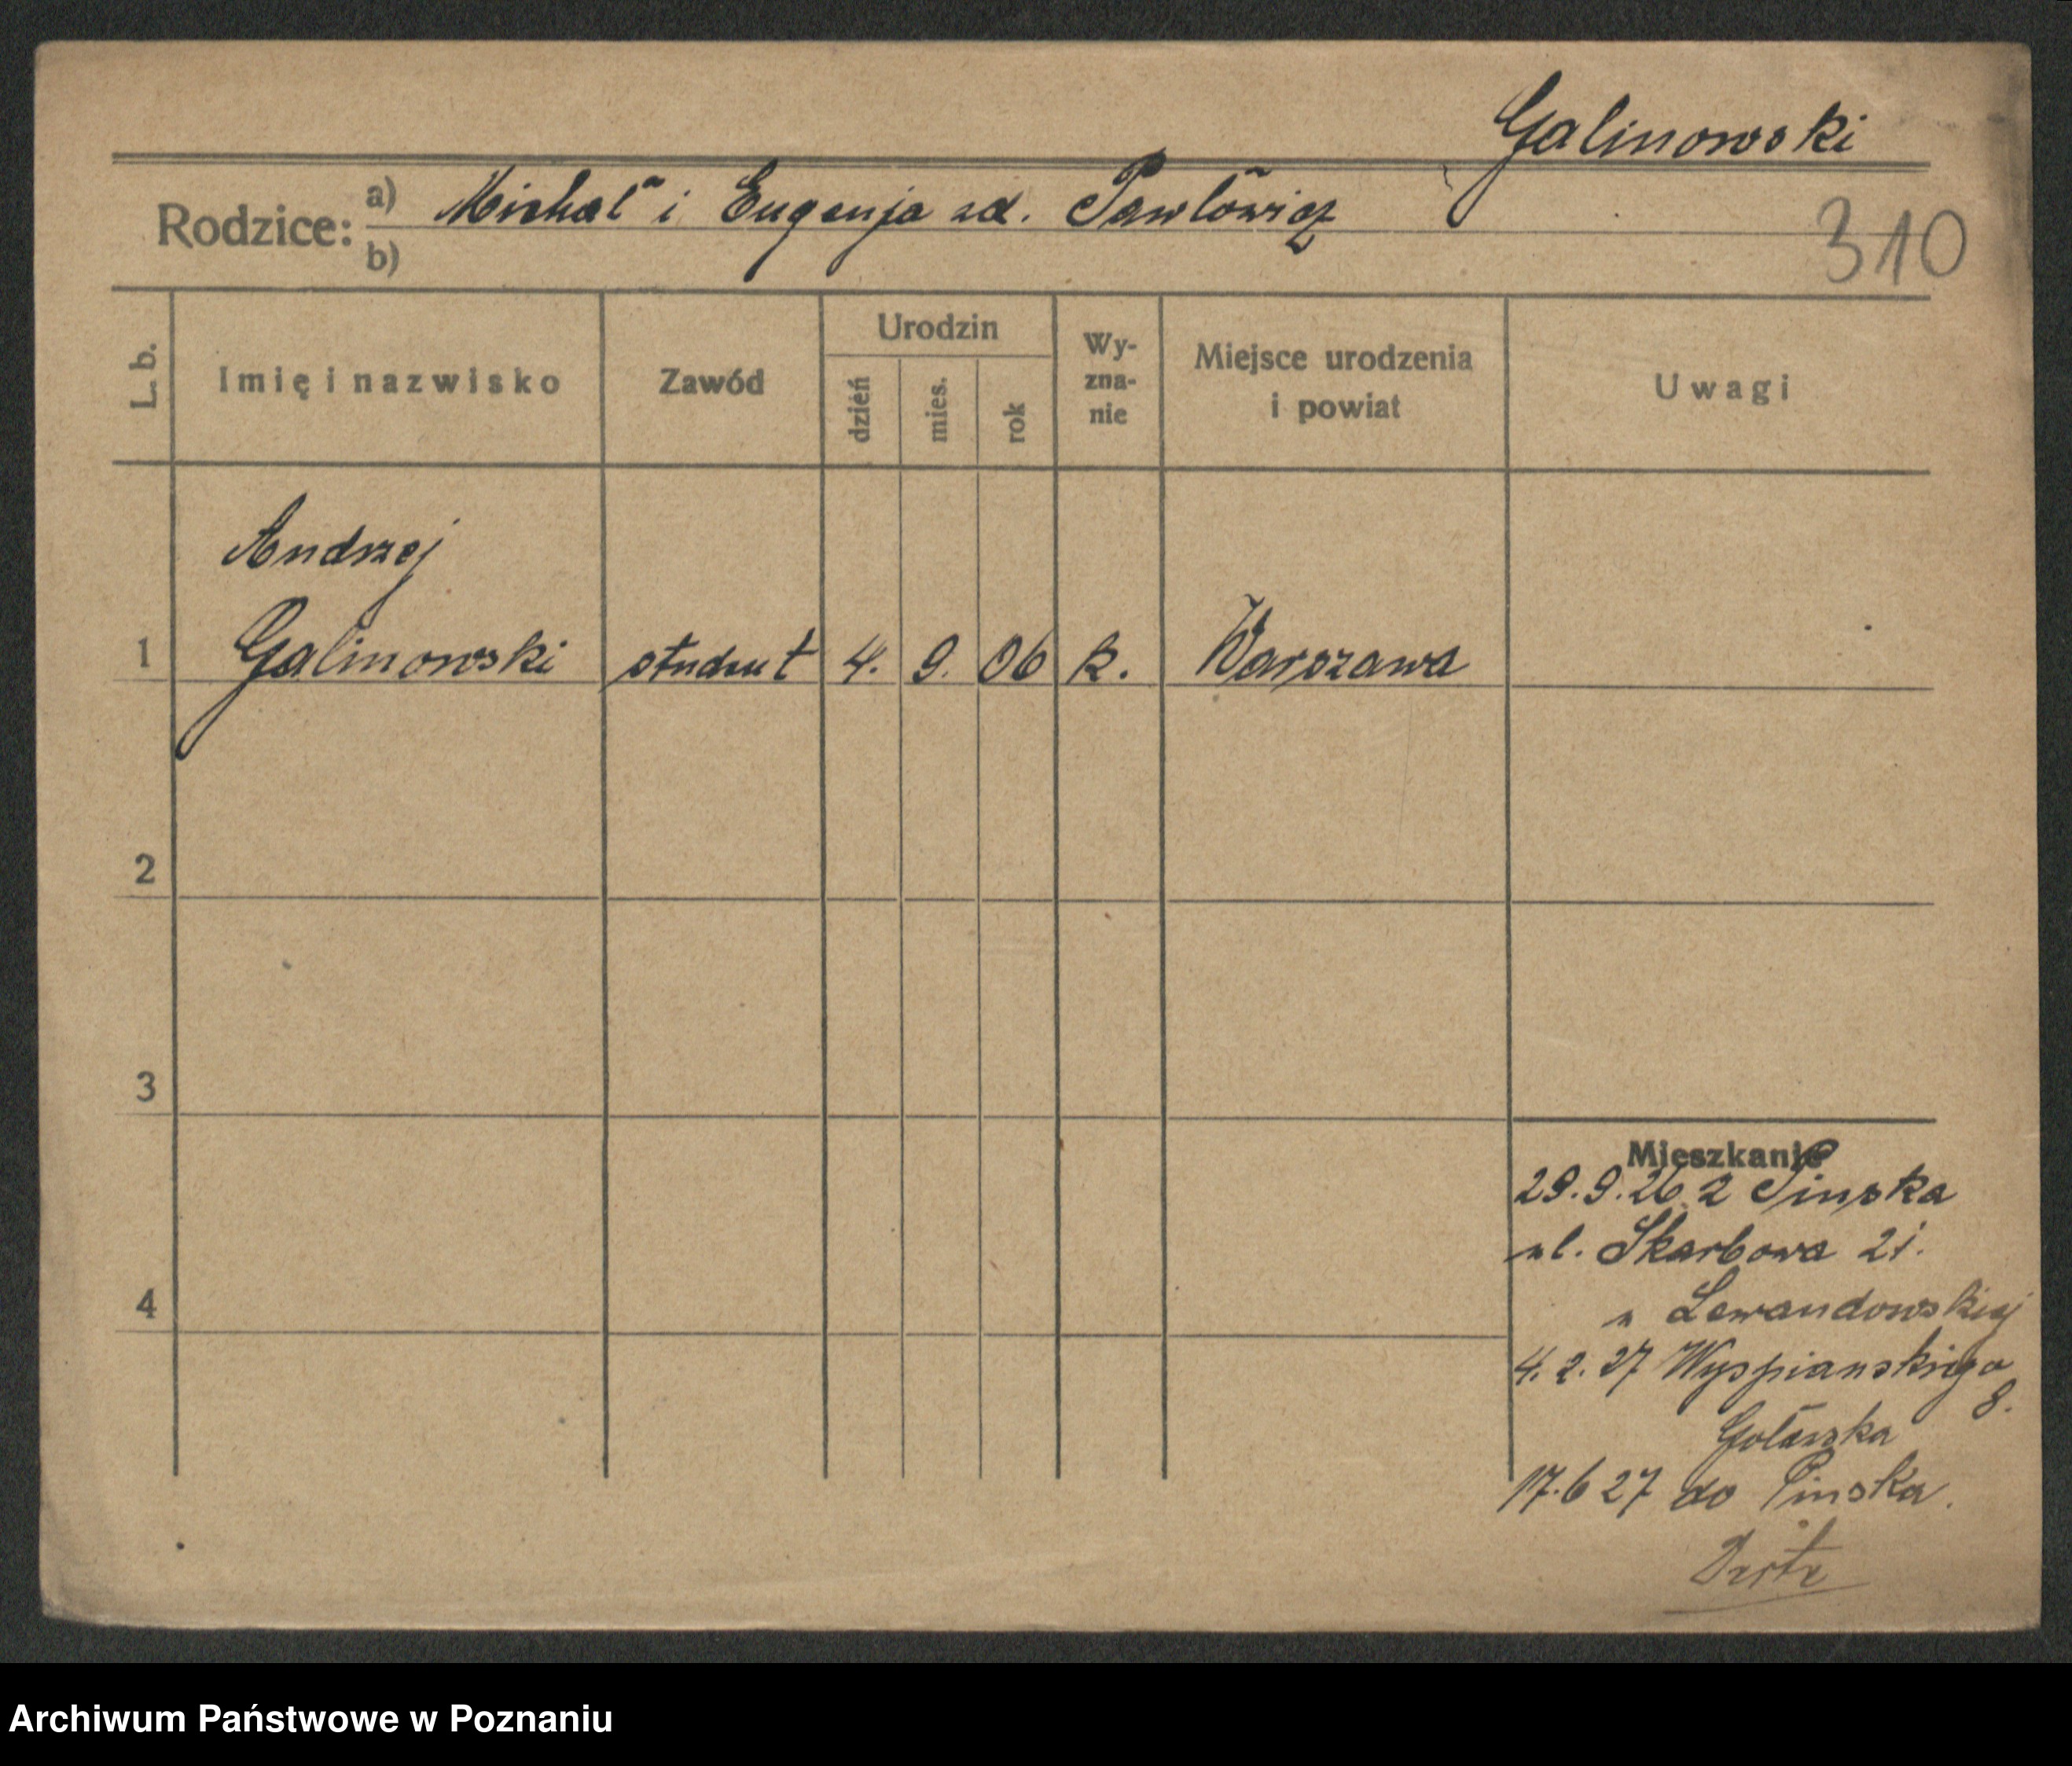 Galinowski
Rodzice: a) Michał i Eugenja zd. Pawłowicz
b)
310
L. b. Imię i nazwisko Zawód Urodzin dzień mies. rok Wy-zna-nie Miejsce urodzenia i powiat Uwagi
Andrzej
1 Galinowski student 4. 9. 06 k. Warszawa
2
3
Mieszkanie
29.9.26 z Pinska
ul. Skarbowa 21.
4
u Lewandowskiej
4.2.27 Wyspianskiego
8.
17.6 27 do Pinska.
Archiwum Państwowe w Poznaniu